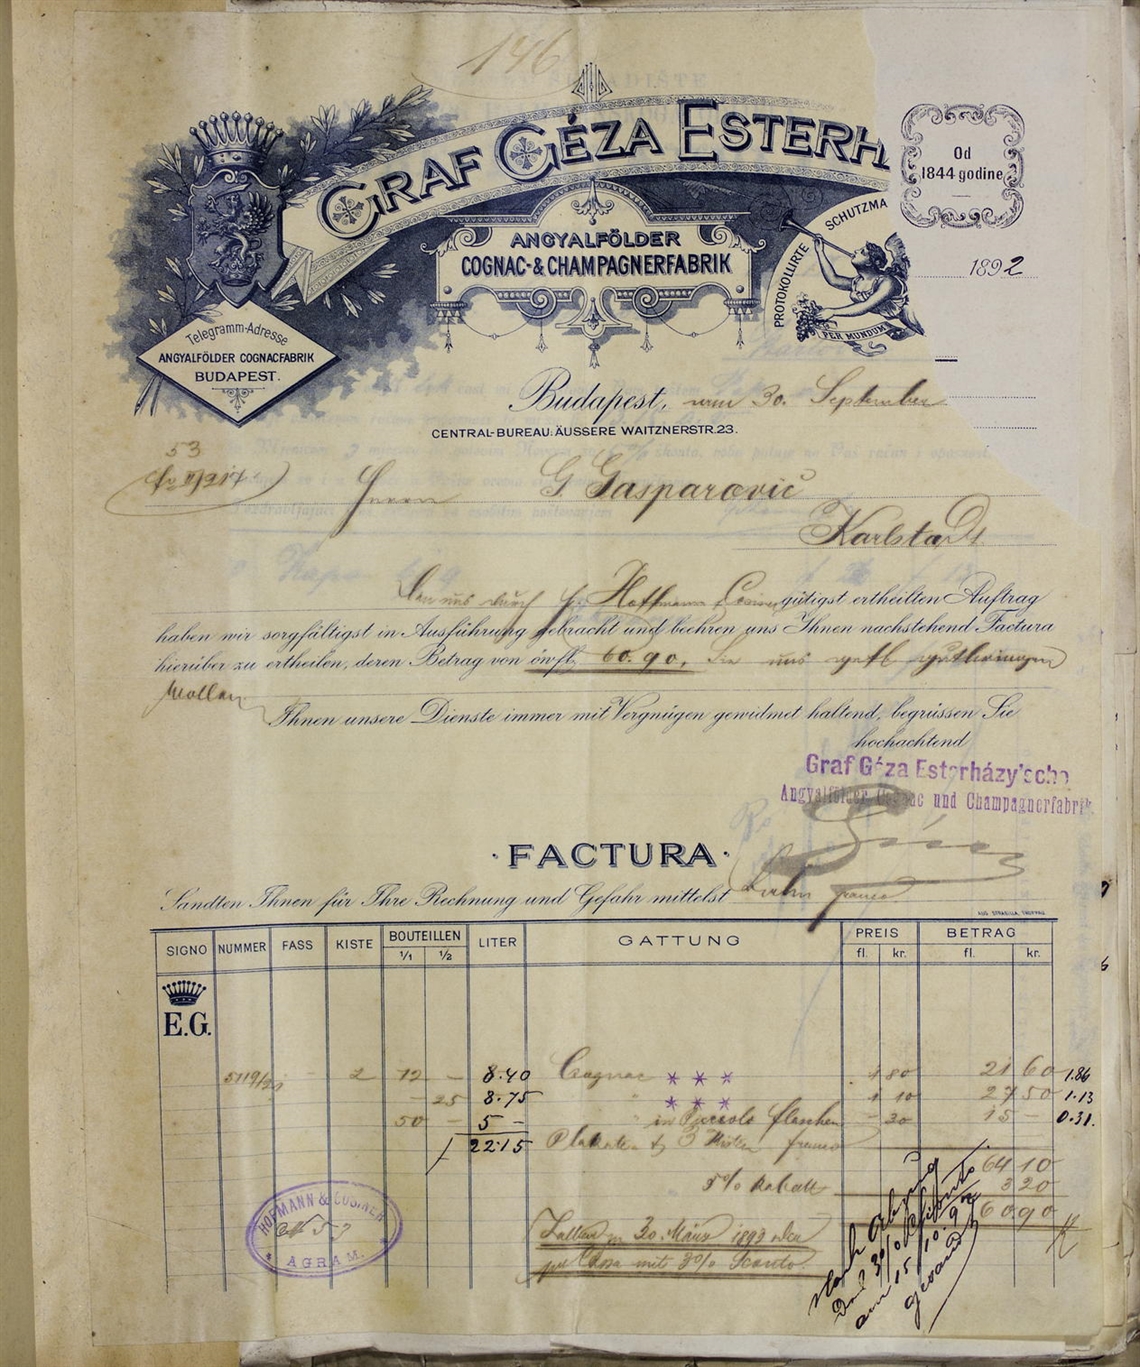 146
GRAF GÉZA ESTERH
Od
1844 godine
ANGYALFÖLDER
COGNAC- & CHAMPAGNERFABRIK
PROTOKOLLIRTE SCHUTZMA
PER MUNDUM
1892
Telegramm-Adresse
ANGYALFÖLDER COGNACFABRIK
BUDAPEST.
Budapest, am 30. September
CENTRAL-BUREAU: ÄUSSERE WAITZNERSTR. 23.
53
Herrn G. Gasparović
Karlstadt
Den uns durch Hoffmann gütigst ertheilten Auftrag
haben wir sorgfältigst in Ausführung gebracht und beehren uns Ihnen nachstehend Factura
hierüber zu ertheilen, deren Betrag von öwfl. 60.90, Sie uns gefl. gutbringen
wollen.
Ihnen unsere Dienste immer mit Vergnügen gewidmet haltend, begrüssen Sie
hochachtend
Graf Géza Esterházy'sche
Angyalfölder Cognac und Champagnerfabrik
· FACTURA ·
Sandten Ihnen für Ihre Rechnung und Gefahr mittelst Bahn franco
SIGNO NUMMER FASS KISTE BOUTEILLEN LITER GATTUNG PREIS BETRAG
1/1 1/2 fl. kr. fl. kr.
E.G.
2 12 – 8.40 Cognac * * * 1 80 21 60 1.86
– 25 8.75 " * * * 1 10 27 50 1.13
50 – 5 – " in Piccolo flaschen – 30 15 – 0.31.
22.15 Plakate & 3 Kisten franco
64 10
5% Rabatt 3 20
60 90
HOFMANN & BOSINER
AGRAM.
Zalbar 30. März 1893 oder
per Cassa mit 3% Sconto.
nach Abzug
3% Skonto
am 15/10. 92